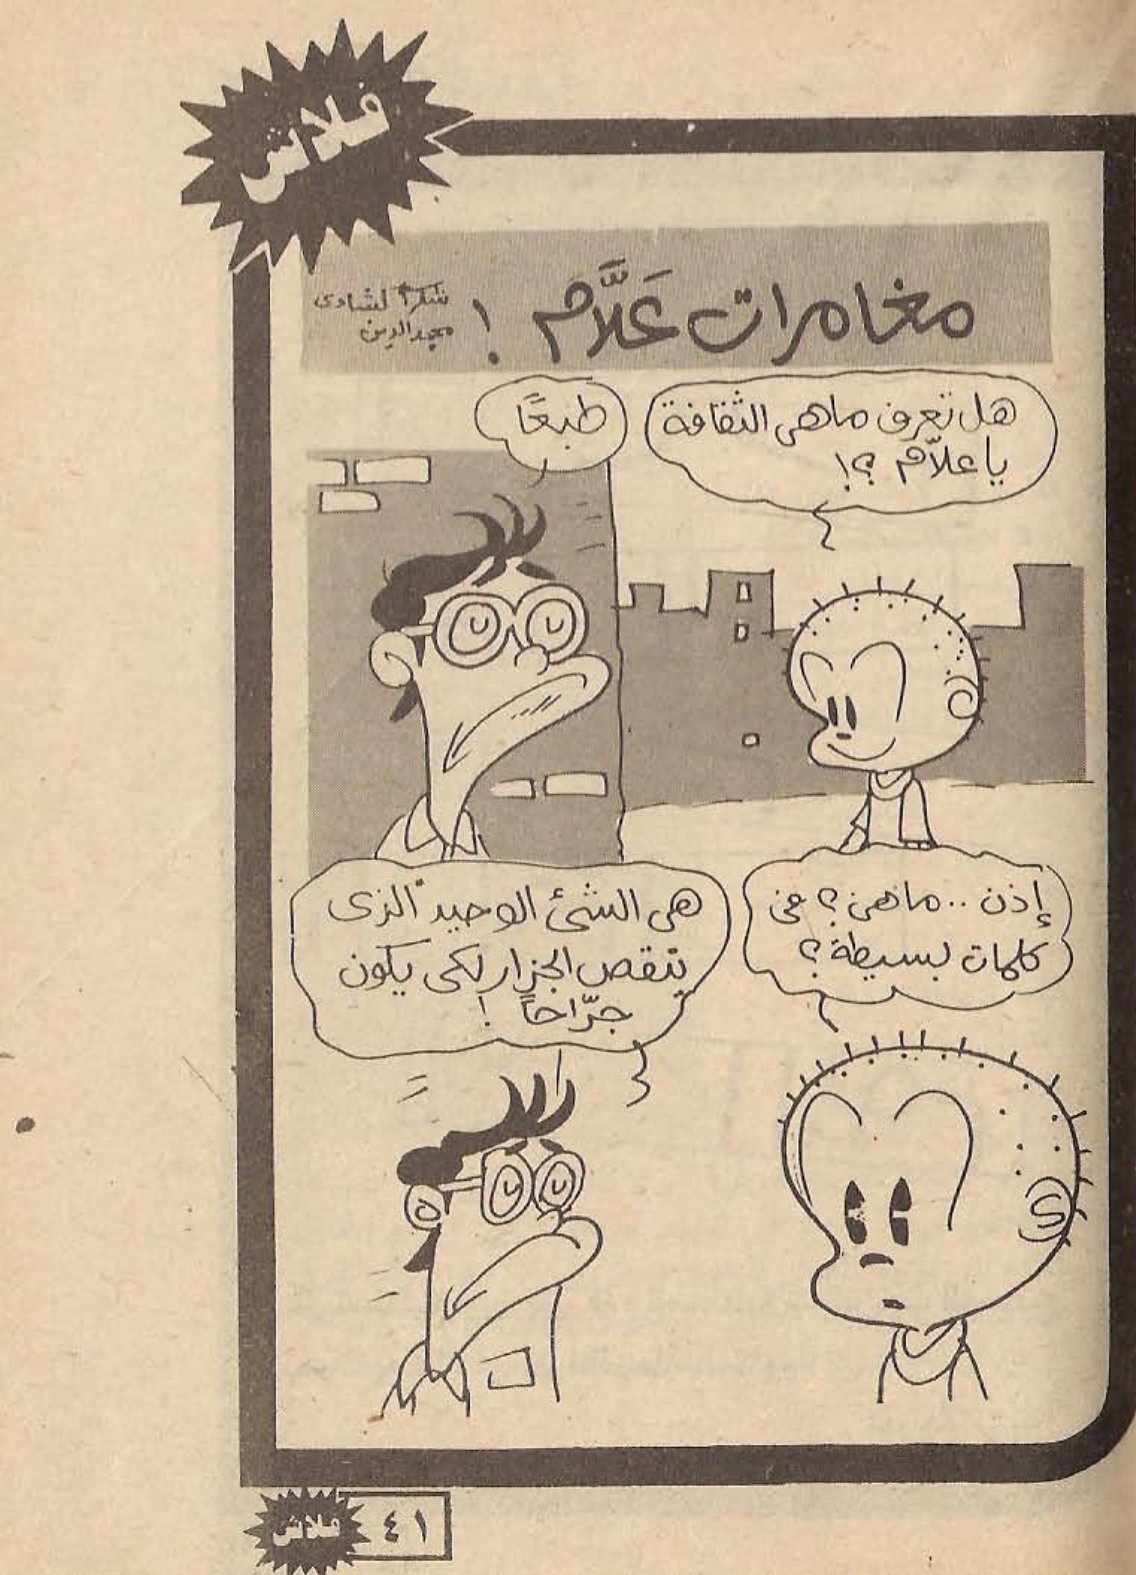 فلاش
مغامرات عَلَّام !
شكراً لشادى
مجد الدين
هل تعرف ماهى الثقافة
يا علّام ؟!
طبعًا
إذن .. ماهى ؟ فى
كلمات بسيطة ؟
هى الشئ الوحيد الذى
ينقص الجزار لكى يكون
جرّاحاً !
٤١
فلاش